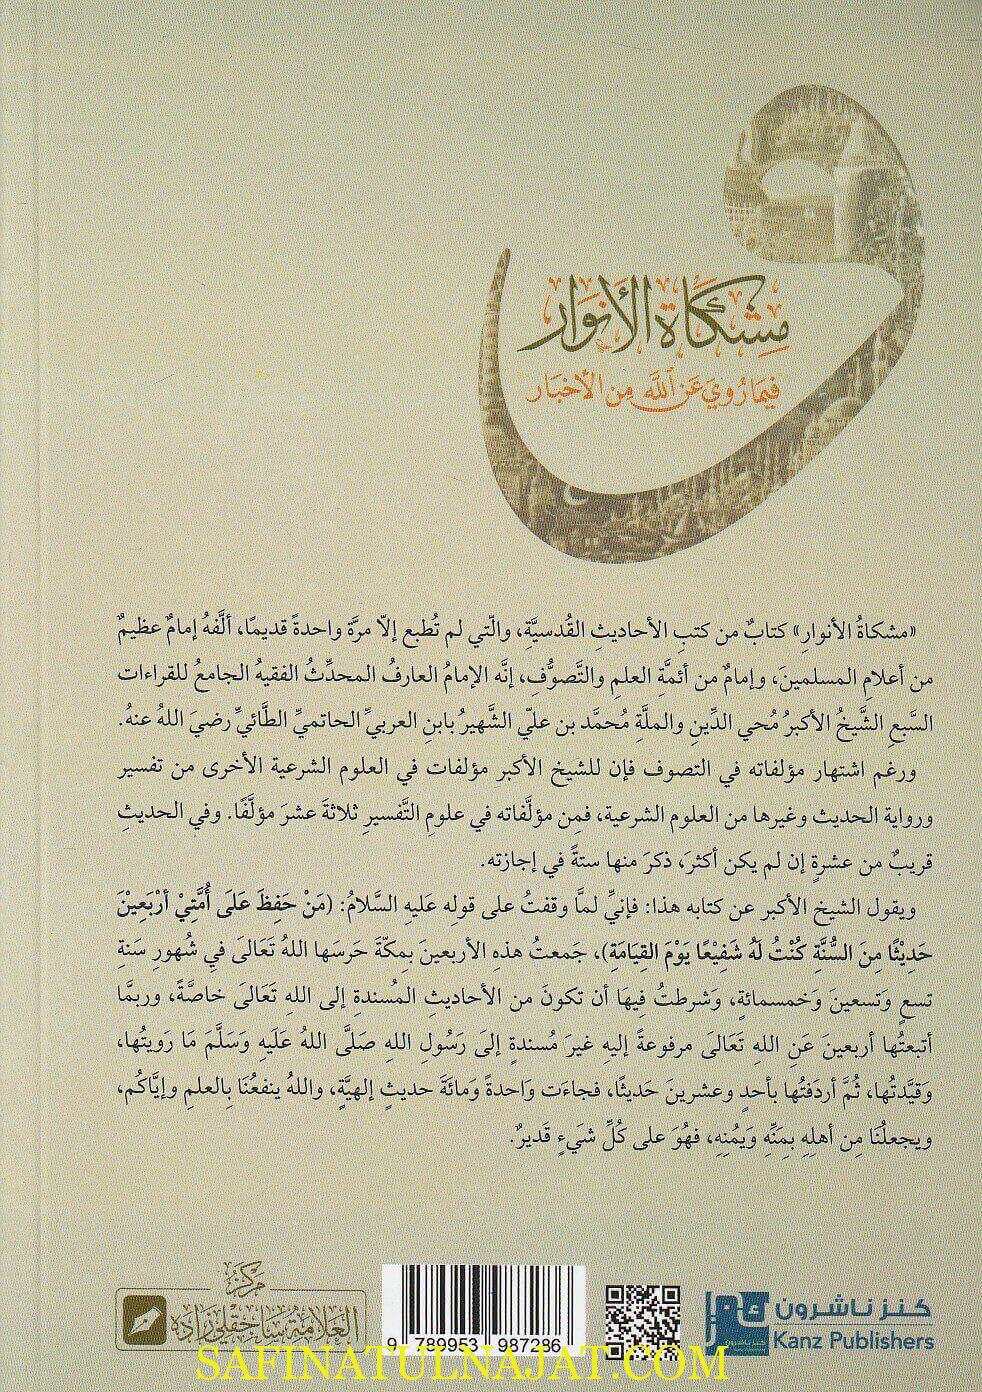 مشكاة الأنوار
فيما رُوي عن الله من الأخبار
«مشكاةُ الأنوارِ» كتابٌ من كتبِ الأحاديثِ القُدسيَّةِ، والّتي لم تُطبع إلّا مرَّة واحدةً قديمًا، ألَّفهُ إمامٌ عظيمٌ
من أعلامِ المسلمينَ، وإمامٌ من أئمَّةِ العلمِ والتَّصوُّفِ، إنَّه الإمامُ العارفُ المحدِّثُ الفقيهُ الجامعُ للقراءات
السَّبعِ الشَّيخُ الأكبرُ مُحيي الدِّينِ والملَّةِ مُحمَّد بن عليّ الشَّهيرُ بابنِ العربيِّ الحاتميِّ الطَّائيِّ رضيَ اللهُ عنهُ.
ورغم اشتهار مؤلفاته في التصوف فإن للشيخ الأكبر مؤلفات في العلوم الشرعية الأخرى من تفسير
ورواية الحديث وغيرها من العلوم الشرعية، فمِن مؤلَّفاته في علومِ التَّفسيرِ ثلاثةَ عشرَ مؤلَّفًا. وفي الحديثِ
قريبٌ من عشرةٍ إن لم يكن أكثرَ، ذكرَ منها ستةً في إجازته.
ويقول الشيخ الأكبر عن كتابه هذا: فإنيِّ لمَّا وقفتُ على قولِه عَليهِ السَّلامُ: (مَنْ حَفِظَ عَلَى أُمَّتِيْ أرْبَعِيْنَ
حَدِيْثًا مِنَ السُّنَّةِ كُنْتُ لَهُ شَفِيْعًا يَوْمَ القِيَامَةِ)، جَمعتُ هذهِ الأربعينَ بِمكّةَ حَرسَها اللهُ تَعَالَى فيِ شُهورِ سَنةِ
تسعٍ وَتسعينَ وَخمسمائةٍ، وَشرطتُ فِيهَا أن تكونَ من الأحاديثِ المُسندةِ إلى اللهِ تَعَالَى خاصَّةً، وربمَّا
أتبعتُها أربعينَ عَنِ اللهِ تَعَالَى مرفوعةً إليهِ غيرَ مُسندةٍ إلىَ رَسُولِ اللهِ صَلَّى اللهُ عَلَيهِ وَسَلَّمَ مَا رَويتُها،
وَقيَّدتُها، ثُمَّ أردَفتُها بأحدٍ وعشرينَ حَديثًا، فجاءَت وَاحدةً وَمائَةَ حديثٍ إلهيَّةٍ، واللهُ ينفعُنَا بِالعلمِ وإيَّاكُم،
ويجعلُنَا مِن أهلِهِ بِمَنِّهِ وَيُمْنِهِ، فهُوَ على كُلِّ شَيءٍ قَديرٌ.
مركز
العلامة ساجقلي زاده
9 789953 987286
كنز ناشرون
Kanz Publishers
SAFINATULNAJAT.COM